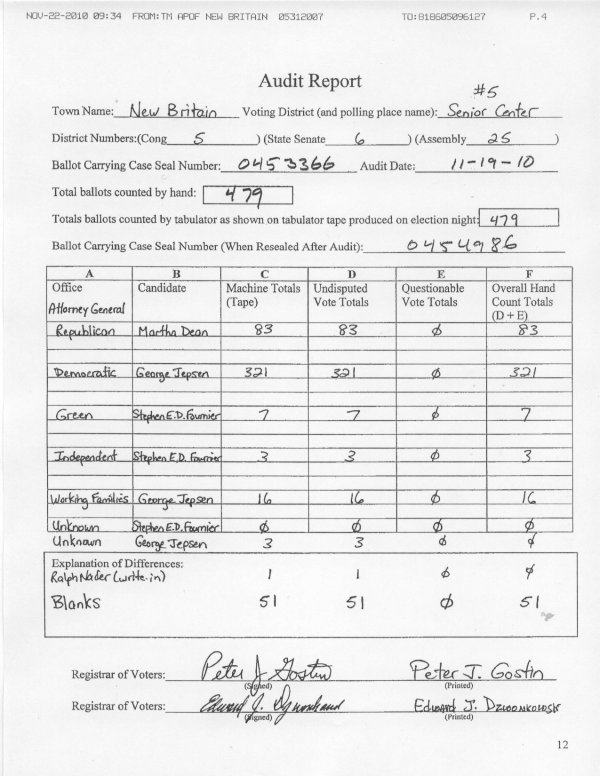 NOV-22-2010 09:34 FROM:TM APOF NEW BRITAIN 05312007 TO:818605096127 P.4
Audit Report
#5
Town Name: New Britain Voting District (and polling place name): Senior Center
District Numbers:(Cong 5 ) (State Senate 6 ) (Assembly 25 )
Ballot Carrying Case Seal Number: 0453366 Audit Date: 11-19-10
Total ballots counted by hand: 479
Totals ballots counted by tabulator as shown on tabulator tape produced on election night: 479
Ballot Carrying Case Seal Number (When Resealed After Audit): 0454986
A B C D E F
Office Candidate Machine Totals Undisputed Questionable Overall Hand
(Tape) Vote Totals Vote Totals Count Totals
Attorney General (D + E)
Republican Martha Dean 83 83 ϕ 83
Democratic George Jepsen 321 321 ϕ 321
Green Stephen E.D. Fournier 7 7 ϕ 7
Independent Stephen E.D. Fournier 3 3 ϕ 3
Working Families George Jepsen 16 16 ϕ 16
Unknown Stephen E.D. Fournier ϕ ϕ ϕ ϕ
Unknown George Jepsen 3 3 ϕ ϕ
Explanation of Differences:
Ralph Nader (write-in) 1 1 ϕ ϕ
Blanks 51 51 ϕ 51
Registrar of Voters: Peter J. Gostin Peter J. Gostin
(Signed) (Printed)
Registrar of Voters: Edward J. Edward J.
(Signed) (Printed)
12